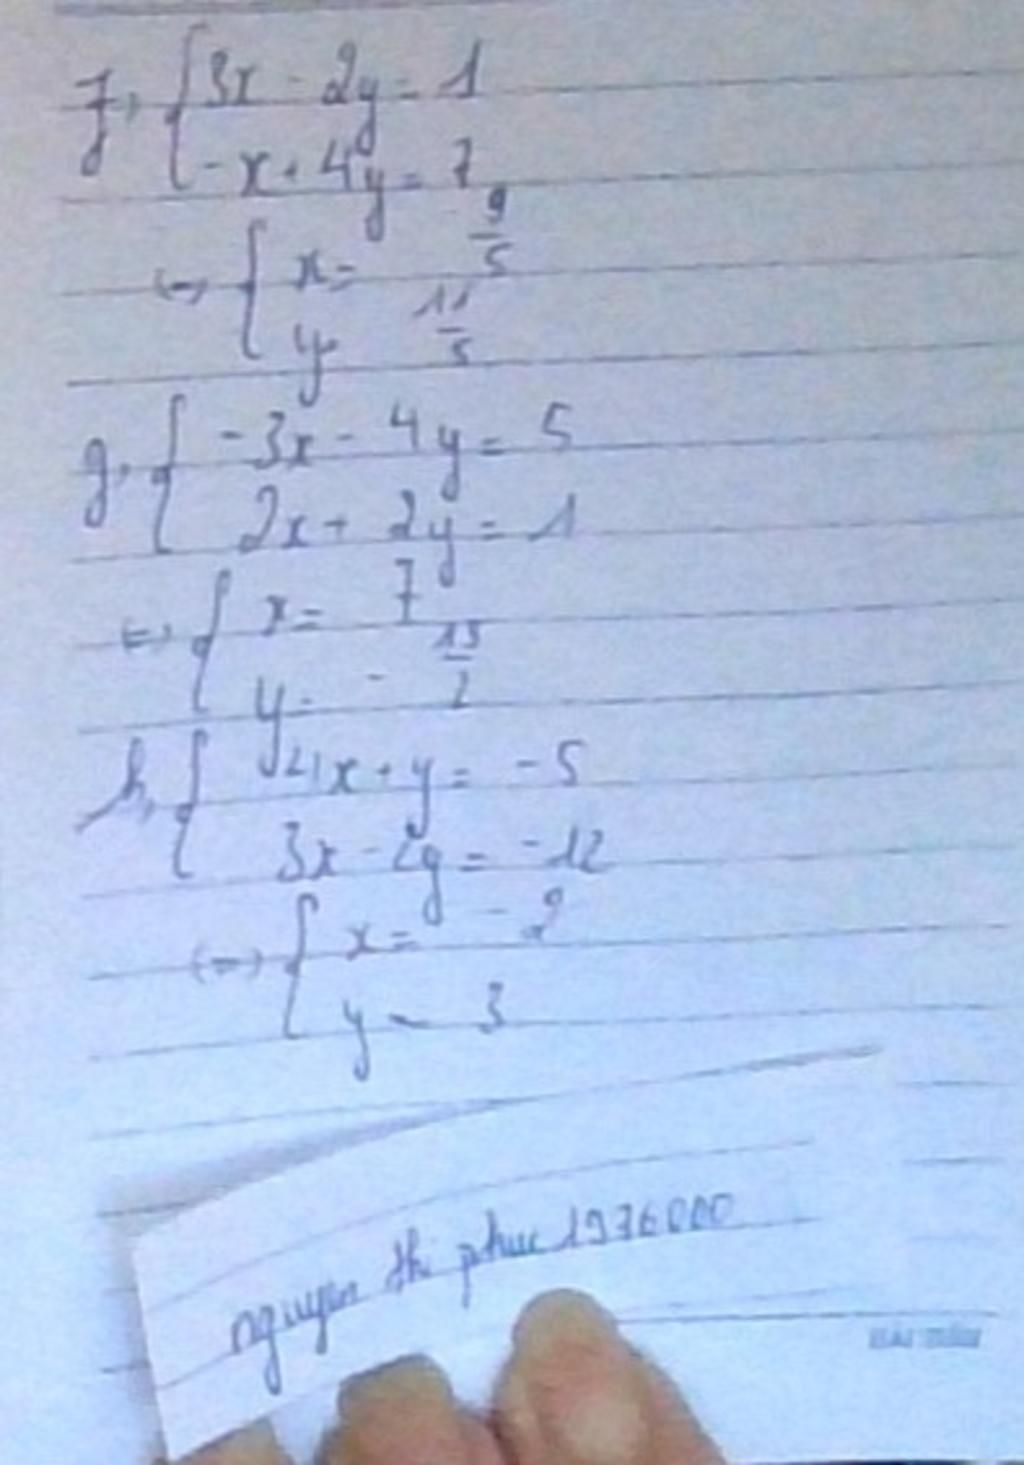 f, { 3x - 2y = 1
-x + 4y = 7
<=> { x = 9/5
y = 11/5
g, { -3x - 4y = 5
2x + 2y = 1
<=> { x = 7
y = - 13/2
h, { 4x + y = -5
3x - 2y = -12
<=> { x = -2
y = 3
nguyen thi phuc 1976000